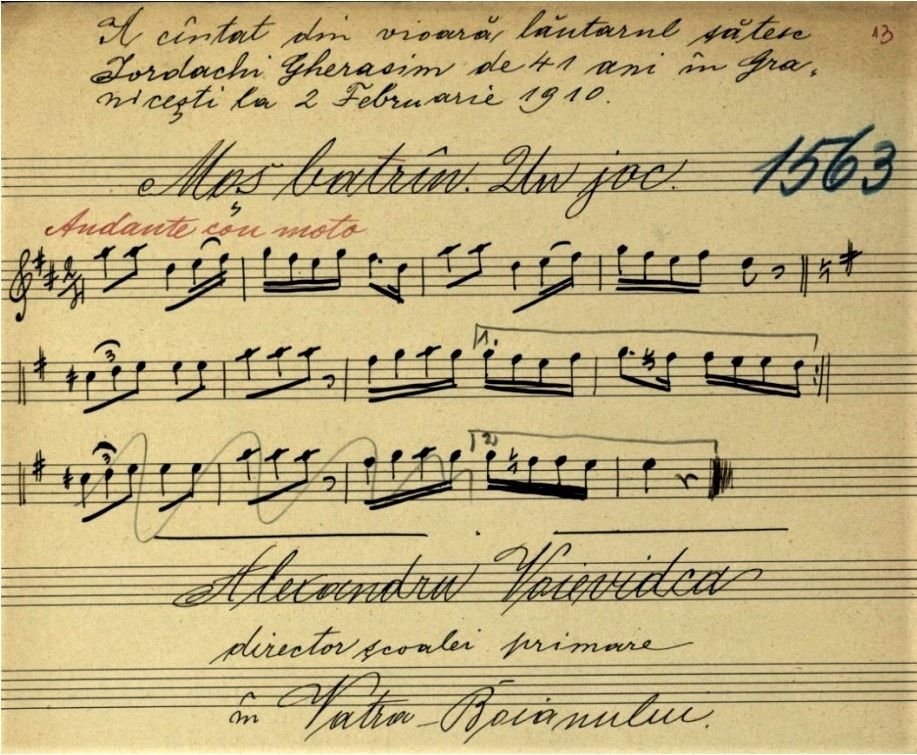 A cîntat din vioară, lăutarul sătesc 13
Iordachi Gherasim de 41 ani în Gra-
nicești la 2 Februarie 1910.
Moș batrîn. Un joc. 1563
Andante con moto
2/4
3
1.
3
2)
Alexandru Voievidca
director școalei primare
în Vatra-Boianului.